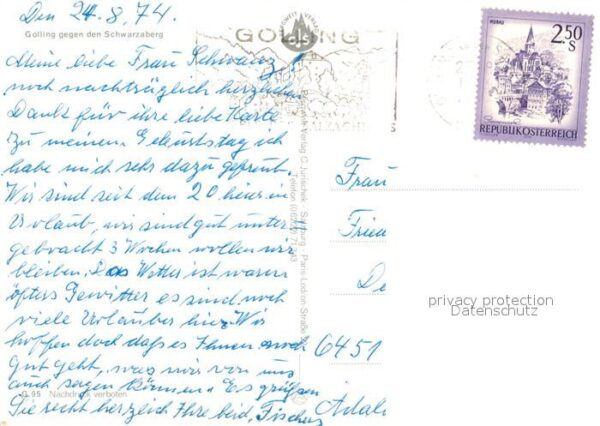 Den 24.8.74.
Golling gegen den Schwarzaberg
Meine liebe Frau Schwanz!
noch nachträglich herzlichen
Dank für ihre liebe Karte
zu meinem Geburtstag ich
habe mich sehr dazu gefreut.
Wir sind seit dem 20 hier in
Urlaub, wir sind gut unter
gebracht 3 Wochen wollen wir
bleiben. Das Wetter ist warm
öfters Gewitter es sind noch
viele Urlauber hier. Wir
hoffen doch daß es Ihnen noch
gut geht, was wir von uns
auch sagen können. Es grüßen
Sie recht herzlich Ihre beid. Fischers
G 95 Nachdruck verboten
GOLLING
SALZACH
Verlag C. Jurischek - Salzburg - Paris-Lodron-Straße
Telefon
MURAU
2.50
S
REPUBLIK ÖSTERREICH
Frau
Frie
De
6451
privacy protection
Datenschutz